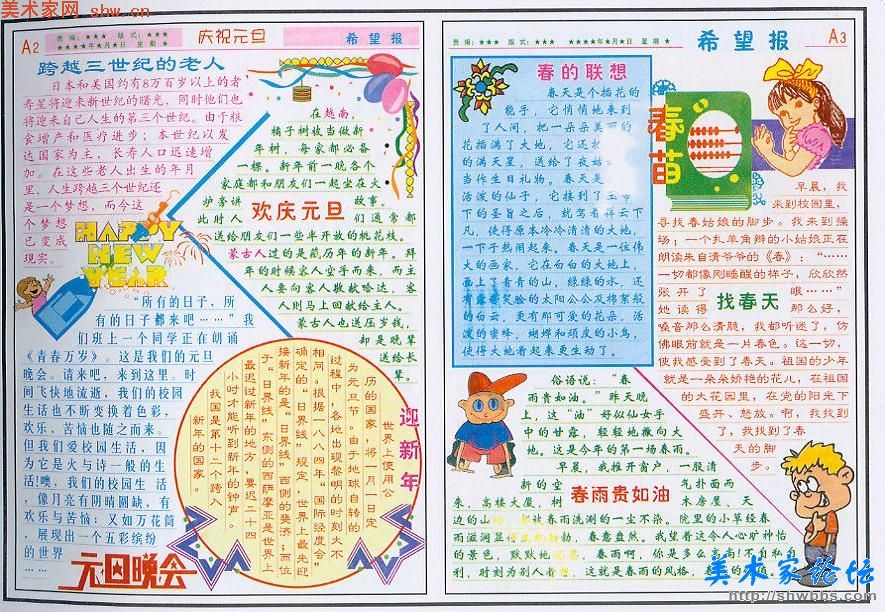 美术家网 shw.cn
A2
责编：★★★ 版式：★★★
★★★★年★月★日 星期★
庆祝元旦
希望报
跨越三世纪的老人
日本和美国约有8万百岁以上的老
寿星将迎来新世纪的曙光，同时他们也
将迎来自己人生的第三个世纪。由于粮
食增产和医疗进步；本世纪以发
达国家为主，长寿人口迅速增
加。在这些老人出生的年月
里，人生跨越三个世纪还
是一个梦想，而今这
个梦想
已变成
现实。
HAPPY
NEW
YEAR
在越南，
橘子树被当做新
年树，每家都必备
一棵。新年前一晚各个
家庭都和朋友们一起坐在火
炉旁讲故事。
此时人们通常都
欢庆元旦
送给朋友们一些半开放的桃花枝。
蒙古人过的是简历年的新年。拜
年的时候客人空手而来，而主
人要向客人敬献哈达，客
人则马上回献给主人。
蒙古人也送压岁钱，
却是晚辈
送给长
辈。
“所有的日子，所
有的日子都来吧……”我
们班上一个同学正在朗诵
《青春万岁》。这是我们的元旦
晚会。请来吧，来到这里。时
间飞快地流逝，我们的校园
生活也不断变换着色彩，
欢乐、苦恼也随之而来。
但我们爱校园生活，因
为它是火与诗一般的生
活!噢，我们的校园生活
，像月亮有阴晴圆缺，有
欢乐与苦恼：又如万花筒
，展现出一个五彩缤纷
的世界
……
元旦晚会
迎新年
世界上使用公
历的国家，将一月一日定
为元旦节。由于地球自转的
过程中，各地出现黎明的时刻大不
相同。根据一八八四年“国际经度会”
确定的“日界线”规定，世界上最先迎
接新年的是“日界线”西侧的斐济；而位
于“日界线”东侧的西萨摩亚是世界上
最迟过新年的地方，要迟二十四
小时才能听到新年的钟声。
我国是第十二个跨入
新年的国家。
责编：★★★ 版式：★★★ ★★★★年★月★日 星期★
希望报
A3
春的联想
春天是个插花的
能手，它悄悄地来到
了人间，把一朵朵美丽的
花插满了大地，它还
的满天星，送给了夜
当作生日礼物。春天是
活泼的仙子，它接到了
下的圣旨之后，就驾着祥云下
凡，使得原本冷冷清清的大地，
一下子热闹起来。春天是一位伟
大的画家，它在白的大地上，
画上了青青的山，绿绿的水，还
有露着笑脸的太阳公公及棉絮般
的白云，更有那可爱的花朵，活
泼的蜜蜂，蝴蝶和顽皮的小鸟，
使得大地看起来更生动了。
春苗
早晨，我
来到校园里，
寻找春姑娘的脚步。我来到操
场；一个扎羊角辫的小姑娘正在
朗读朱自清爷爷的《春》：“……
一切都像刚睡醒的样子，欣欣然
张开了眼……”
她读得那么好，
找春天
嗓音那么清脆，我都听迷了，仿
佛眼前就是一片春色。这一切，
使我感觉到了春天。祖国的少年
就是一朵朵娇艳的花儿，在祖国
的大花园里，在党的阳光下
盛开、怒放。啊，我找到
了，我找到了春
天的脚
步。
俗语说：“春
雨贵如油。”昨天晚
上，这“油”好似仙女手
中的甘露，轻轻地撒向大
地。这是今年的第一场春雨。
早晨，我推开窗户，一股清
新的空气扑面而
来，高楼大厦，树木房屋，天
春雨贵如油
边的山都被春雨洗涮的一尘不染。院里的小草经春
雨滋润显得生机勃勃，春意盎然。我望着这令人心旷神怡
的景色，默默地沉思，春雨啊，你是多么高尚!不自私自
利，时刻为别人着想，这就是春雨的风格，春雨的
美术家论坛
http://shwbbs.com